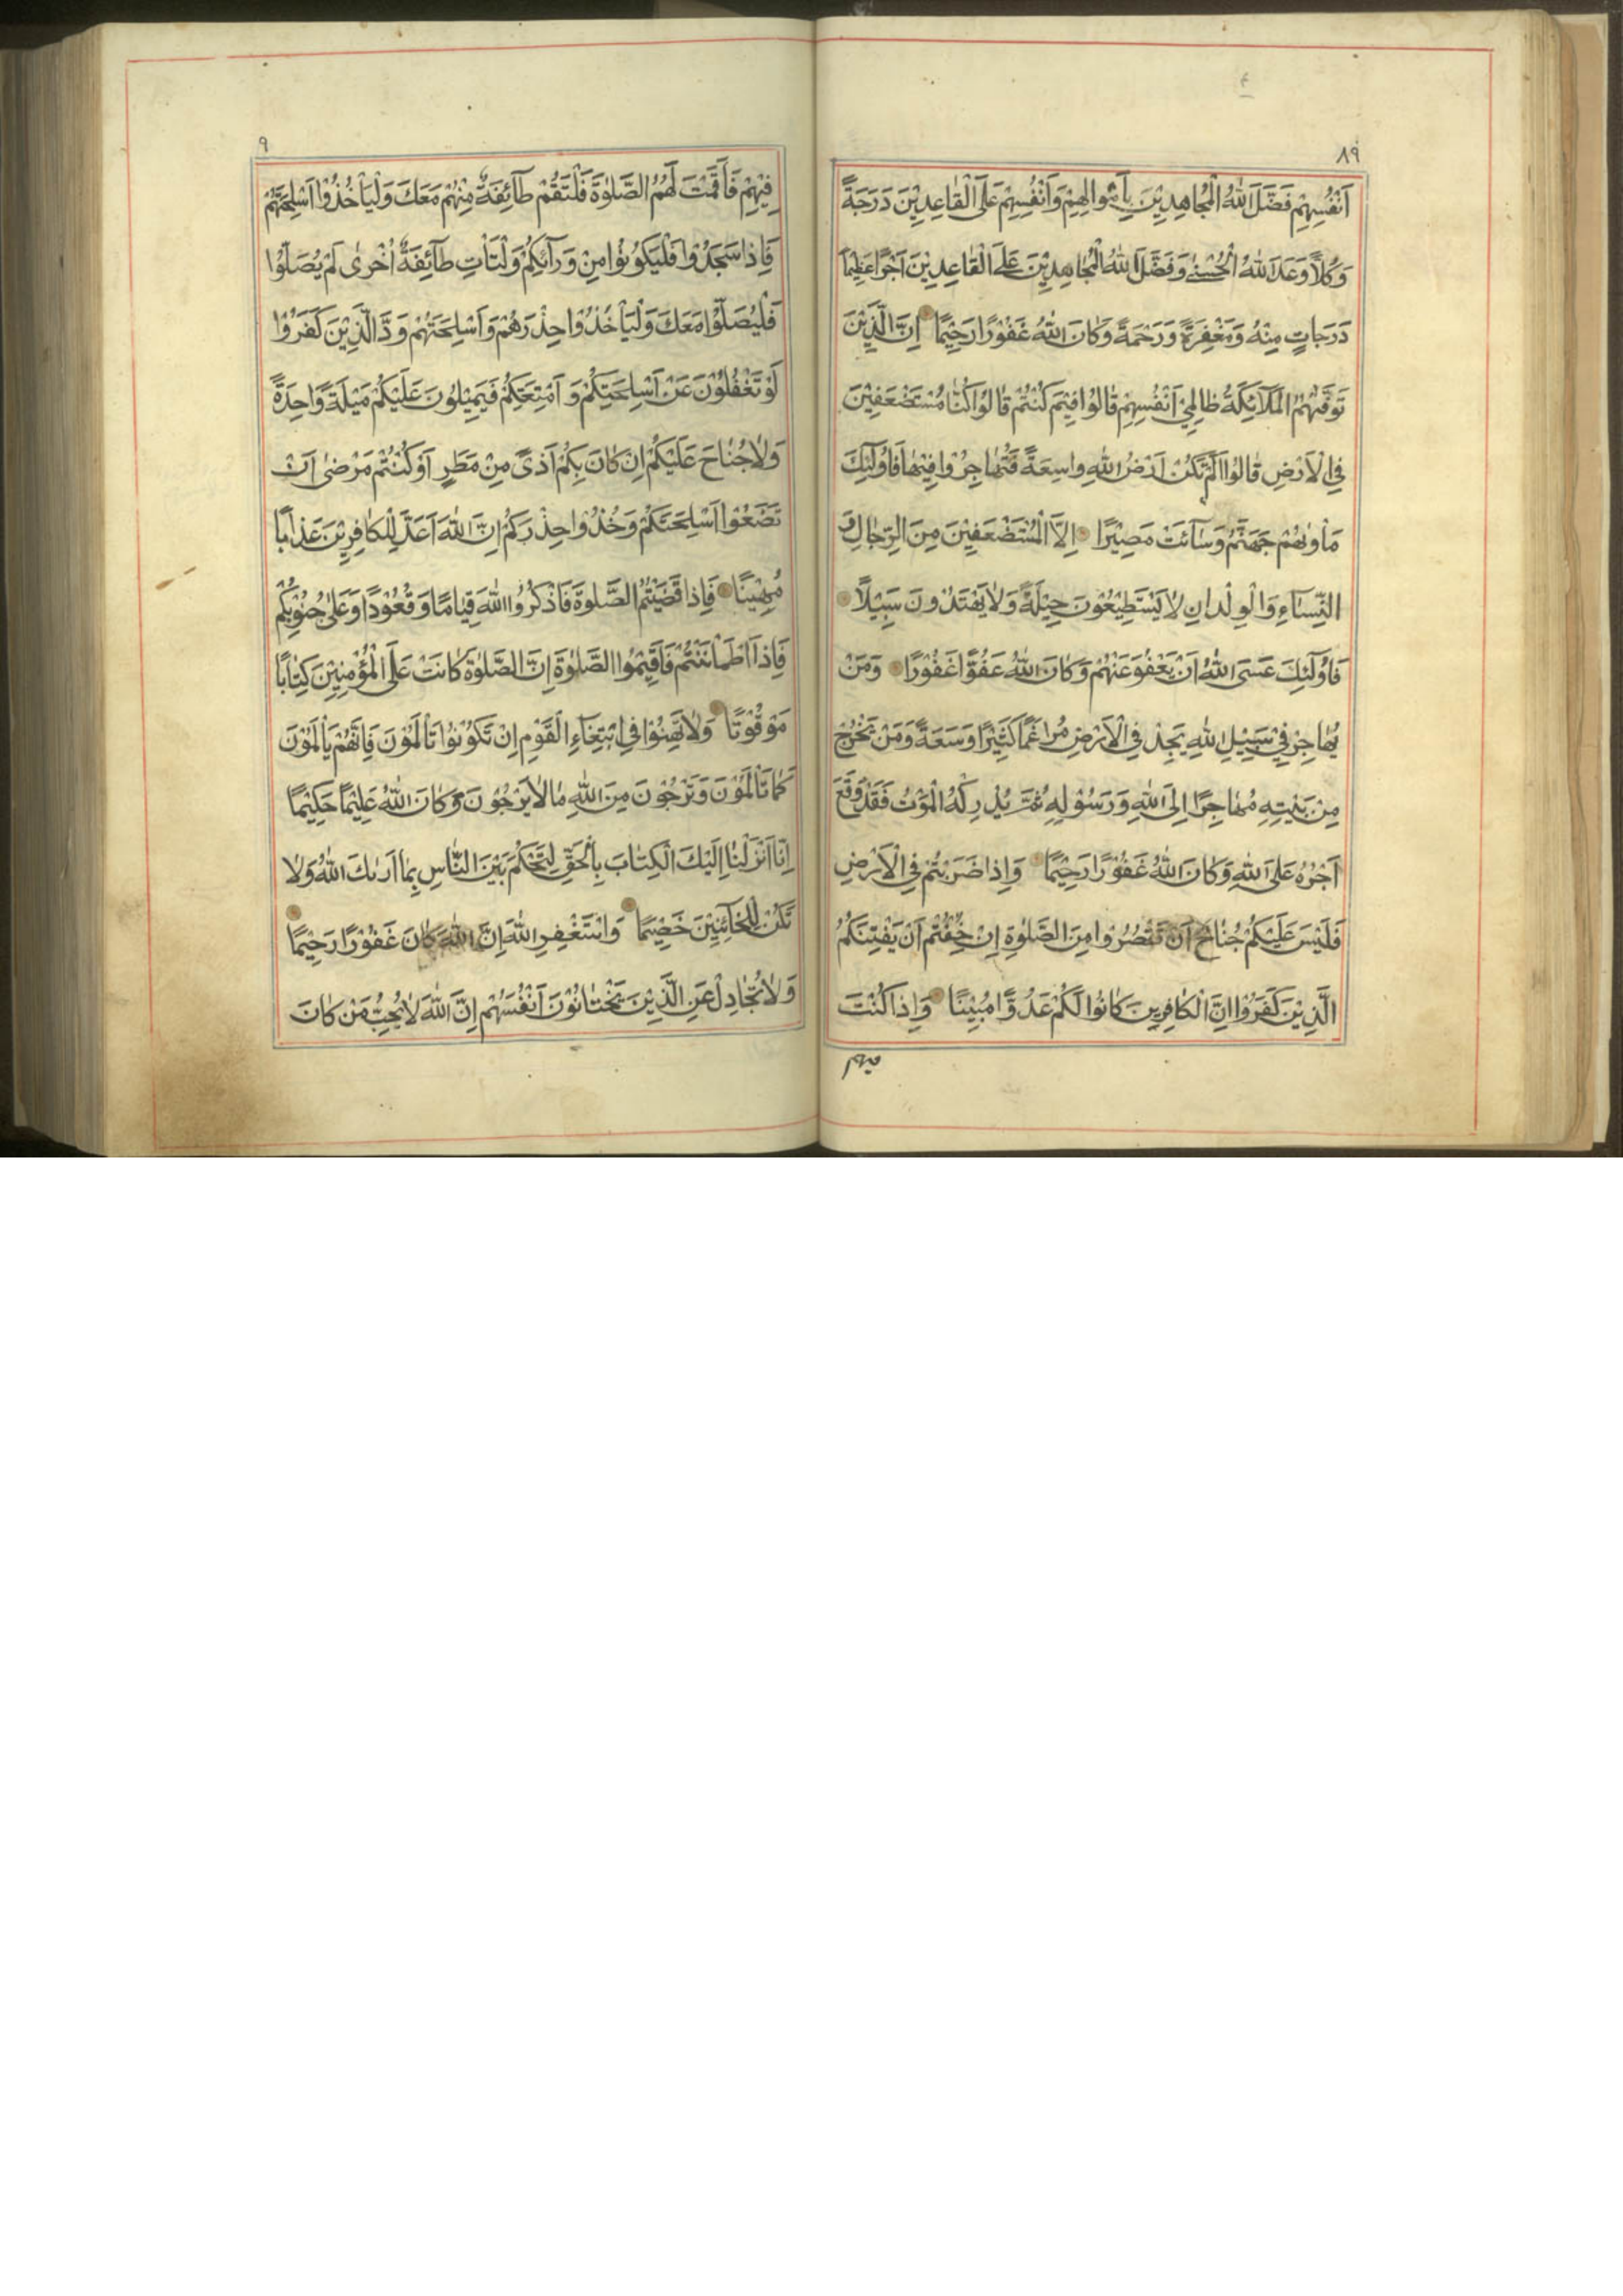 ٨٩
اَنْفُسِهِمْ فَضَّلَ اللّٰهُ الْمُجَاهِدِيْنَ بِاَمْوالِهِمْ وَاَنْفُسِهِمْ عَلَى الْقَاعِدِيْنَ دَرَجَةً
وَكُلًّا وَعَدَ اللّٰهُ الْحُسْنٰى وَفَضَّلَ اللّٰهُ الْمُجَاهِدِيْنَ عَلَى الْقَاعِدِيْنَ اَجْرًا عَظِيْمًا
دَرَجَاتٍ مِنْهُ وَمَغْفِرَةً وَرَحْمَةً وَكَانَ اللّٰهُ غَفُوْرًا رَحِيْمًا اِنَّ الَّذِيْنَ
تَوَفّٰيهُمُ الْمَلَآئِكَةُ ظَالِمِيْ اَنْفُسِهِمْ قَالُوْا فِيْمَ كُنْتُمْ قَالُوْا كُنَّا مُسْتَضْعَفِيْنَ
فِي الْاَرْضِ قَالُوْا اَلَمْ تَكُنْ اَرْضُ اللّٰهِ وَاسِعَةً فَتُهَاجِرُوْا فِيْهَا فَاُولٰٓئِكَ
مَأْوٰيهُمْ جَهَنَّمُ وَسَآءَتْ مَصِيْرًا اِلَّا الْمُسْتَضْعَفِيْنَ مِنَ الرِّجَالِ وَ
النِّسَآءِ وَالْوِلْدَانِ لَا يَسْتَطِيْعُوْنَ حِيْلَةً وَلَا يَهْتَدُوْنَ سَبِيْلًا
فَاُولٰٓئِكَ عَسَى اللّٰهُ اَنْ يَعْفُوَ عَنْهُمْ وَكَانَ اللّٰهُ عَفُوًّا غَفُوْرًا وَمَنْ
يُهَاجِرْ فِيْ سَبِيْلِ اللّٰهِ يَجِدْ فِي الْاَرْضِ مُرَاغَمًا كَثِيْرًا وَسَعَةً وَمَنْ يَخْرُجْ
مِنْ بَيْتِهِ مُهَاجِرًا اِلَى اللّٰهِ وَرَسُوْلِهِ ثُمَّ يُدْرِكْهُ الْمَوْتُ فَقَدْ وَقَعَ
اَجْرُهُ عَلَى اللّٰهِ وَكَانَ اللّٰهُ غَفُوْرًا رَحِيْمًا وَاِذَا ضَرَبْتُمْ فِي الْاَرْضِ
فَلَيْسَ عَلَيْكُمْ جُنَاحٌ اَنْ تَقْصُرُوْا مِنَ الصَّلٰوةِ اِنْ خِفْتُمْ اَنْ يَفْتِنَكُمُ
الَّذِيْنَ كَفَرُوْا اِنَّ الْكَافِرِيْنَ كَانُوْا لَكُمْ عَدُوًّا مُبِيْنًا وَاِذَا كُنْتَ
فيهم
٩
فِيْهِمْ فَاَقَمْتَ لَهُمُ الصَّلٰوةَ فَلْتَقُمْ طَآئِفَةٌ مِنْهُمْ مَعَكَ وَلْيَأْخُذُوْا اَسْلِحَتَهُمْ
فَاِذَا سَجَدُوْا فَلْيَكُوْنُوْا مِنْ وَرَآئِكُمْ وَلْتَأْتِ طَآئِفَةٌ اُخْرٰى لَمْ يُصَلُّوْا
فَلْيُصَلُّوْا مَعَكَ وَلْيَأْخُذُوْا حِذْرَهُمْ وَاَسْلِحَتَهُمْ وَدَّ الَّذِيْنَ كَفَرُوْا
لَوْ تَغْفُلُوْنَ عَنْ اَسْلِحَتِكُمْ وَ اَمْتِعَتِكُمْ فَيَمِيْلُوْنَ عَلَيْكُمْ مَيْلَةً وَاحِدَةً
وَلَا جُنَاحَ عَلَيْكُمْ اِنْ كَانَ بِكُمْ اَذًى مِنْ مَطَرٍ اَوْ كُنْتُمْ مَرْضٰى اَنْ
تَضَعُوْا اَسْلِحَتَكُمْ وَخُذُوْا حِذْرَكُمْ اِنَّ اللّٰهَ اَعَدَّ لِلْكَافِرِيْنَ عَذَابًا
مُهِيْنًا فَاِذَا قَضَيْتُمُ الصَّلٰوةَ فَاذْكُرُوا اللّٰهَ قِيَامًا وَقُعُوْدًا وَعَلٰى جُنُوْبِكُمْ
فَاِذَا اطْمَأْنَنْتُمْ فَاَقِيْمُوا الصَّلٰوةَ اِنَّ الصَّلٰوةَ كَانَتْ عَلَى الْمُؤْمِنِيْنَ كِتَابًا
مَوْقُوْتًا وَلَا تَهِنُوْا فِي ابْتِغَآءِ الْقَوْمِ اِنْ تَكُوْنُوْا تَأْلَمُوْنَ فَاِنَّهُمْ يَأْلَمُوْنَ
كَمَا تَأْلَمُوْنَ وَتَرْجُوْنَ مِنَ اللّٰهِ مَا لَا يَرْجُوْنَ وَكَانَ اللّٰهُ عَلِيْمًا حَكِيْمًا
اِنَّا اَنْزَلْنَا اِلَيْكَ الْكِتَابَ بِالْحَقِّ لِتَحْكُمَ بَيْنَ النَّاسِ بِمَا اَرٰىكَ اللّٰهُ وَلَا
تَكُنْ لِلْخَآئِنِيْنَ خَصِيْمًا وَاسْتَغْفِرِ اللّٰهَ اِنَّ اللّٰهَ كَانَ غَفُوْرًا رَحِيْمًا
وَلَا تُجَادِلْ عَنِ الَّذِيْنَ يَخْتَانُوْنَ اَنْفُسَهُمْ اِنَّ اللّٰهَ لَا يُحِبُّ مَنْ كَانَ